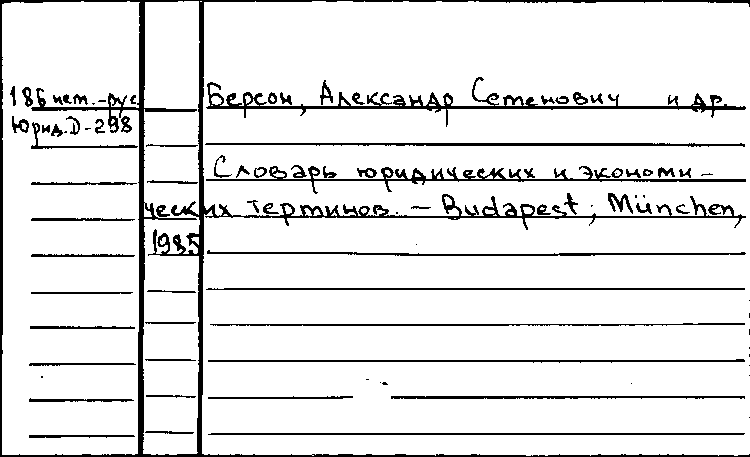 18Б нем.-рус. Берсон, Александр Семенович и др.
Юрид. D-298
Словарь юридических и экономи-
ческих терминов. - Budapest; München,
1985.